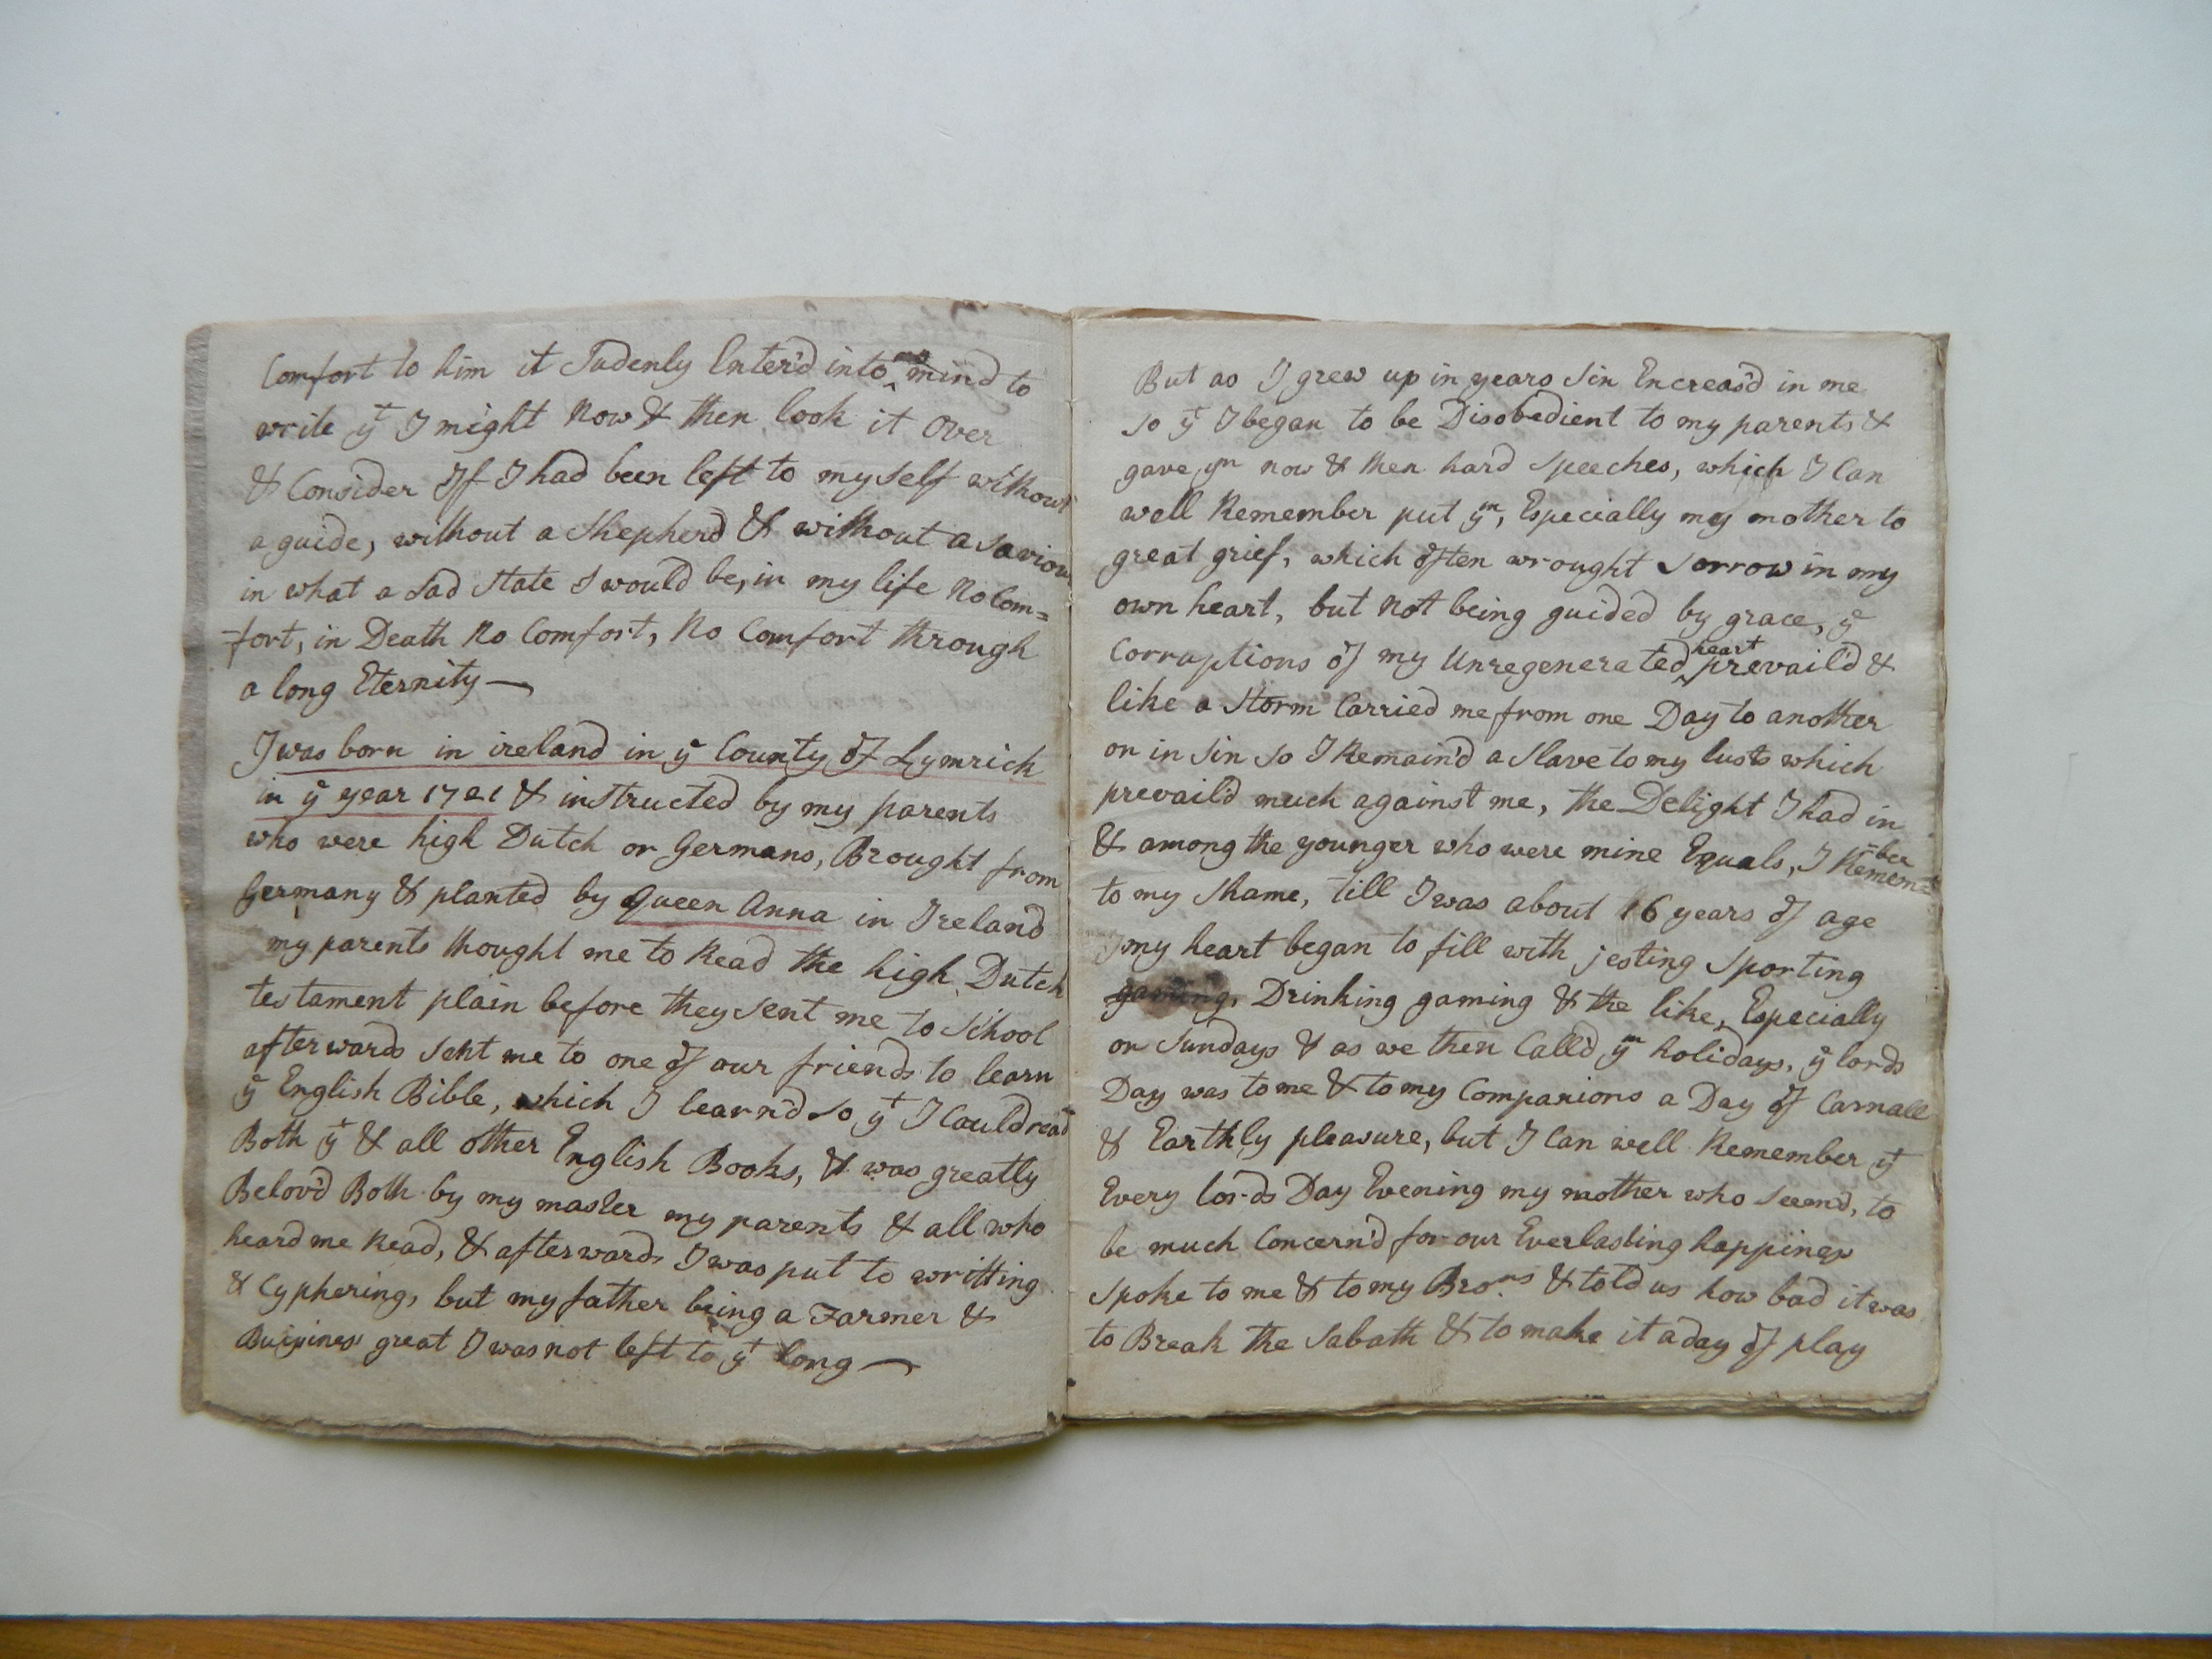 Comfort to him it Sudenly Enter'd into my mind to
write yt I might Now & then look it Over
& Consider If I had been left to my Self without
a guide, without a Shepherd & without a Saviour
in what a Sad State I would be, in my life No Com=
fort, in Death No Comfort, No Comfort through
a long Eternity—
I was born in ireland in ye County of Lymrick
in ye year 1721 & instructed by my parents
who were high Dutch or Germans, Brought from
Germany & planted by Queen Anna in Ireland
my parents thought me to Read the high Dutch
testament plain before they Sent me to School
afterwards Sent me to one of our friends to learn
ye English Bible, which I learn'd So yt I Could read
Both yt & all other English Books, & was greatly
Belov'd Both by my master my parents & all who
heard me Read, & afterwards I was put to writting
& Cyphering, but my father being a Farmer &
Buissiness great I was not left to yt long—
But as I grew up in years Sin Encreas'd in me
So yt I began to be Disobedient to my parents &
gave ym now & then hard Speeches, which I Can
well Remember put ym, Especially my mother to
great grief, which often wrought Sorrow in my
own heart, but Not being guided by grace, ye
Corruptions of my Unregenerated heart prevail'd &
like a Storm Carried me from one Day to another
on in Sin So I Remain'd a Slave to my lusts which
prevail'd much against me, the Delight I had in
& among the younger who were mine Equals, I Remem=ber
to my Shame, till I was about 16 years of age
my heart began to fill with jesting Sporting
Drinking gaming & the like, Especially
on Sundays & as we then Call'd ym holidays, ye lords
Day was to me & to my Companions a Day of Carnall
& Earthly pleasure, but I Can well Remember yt
Every lords Day Evening my mother who Seem'd, to
be much Concern'd for our Everlasting happiness
Spoke to me & to my Bro:rs & told us how bad it was
to Break the Sabath & to make it a day of play